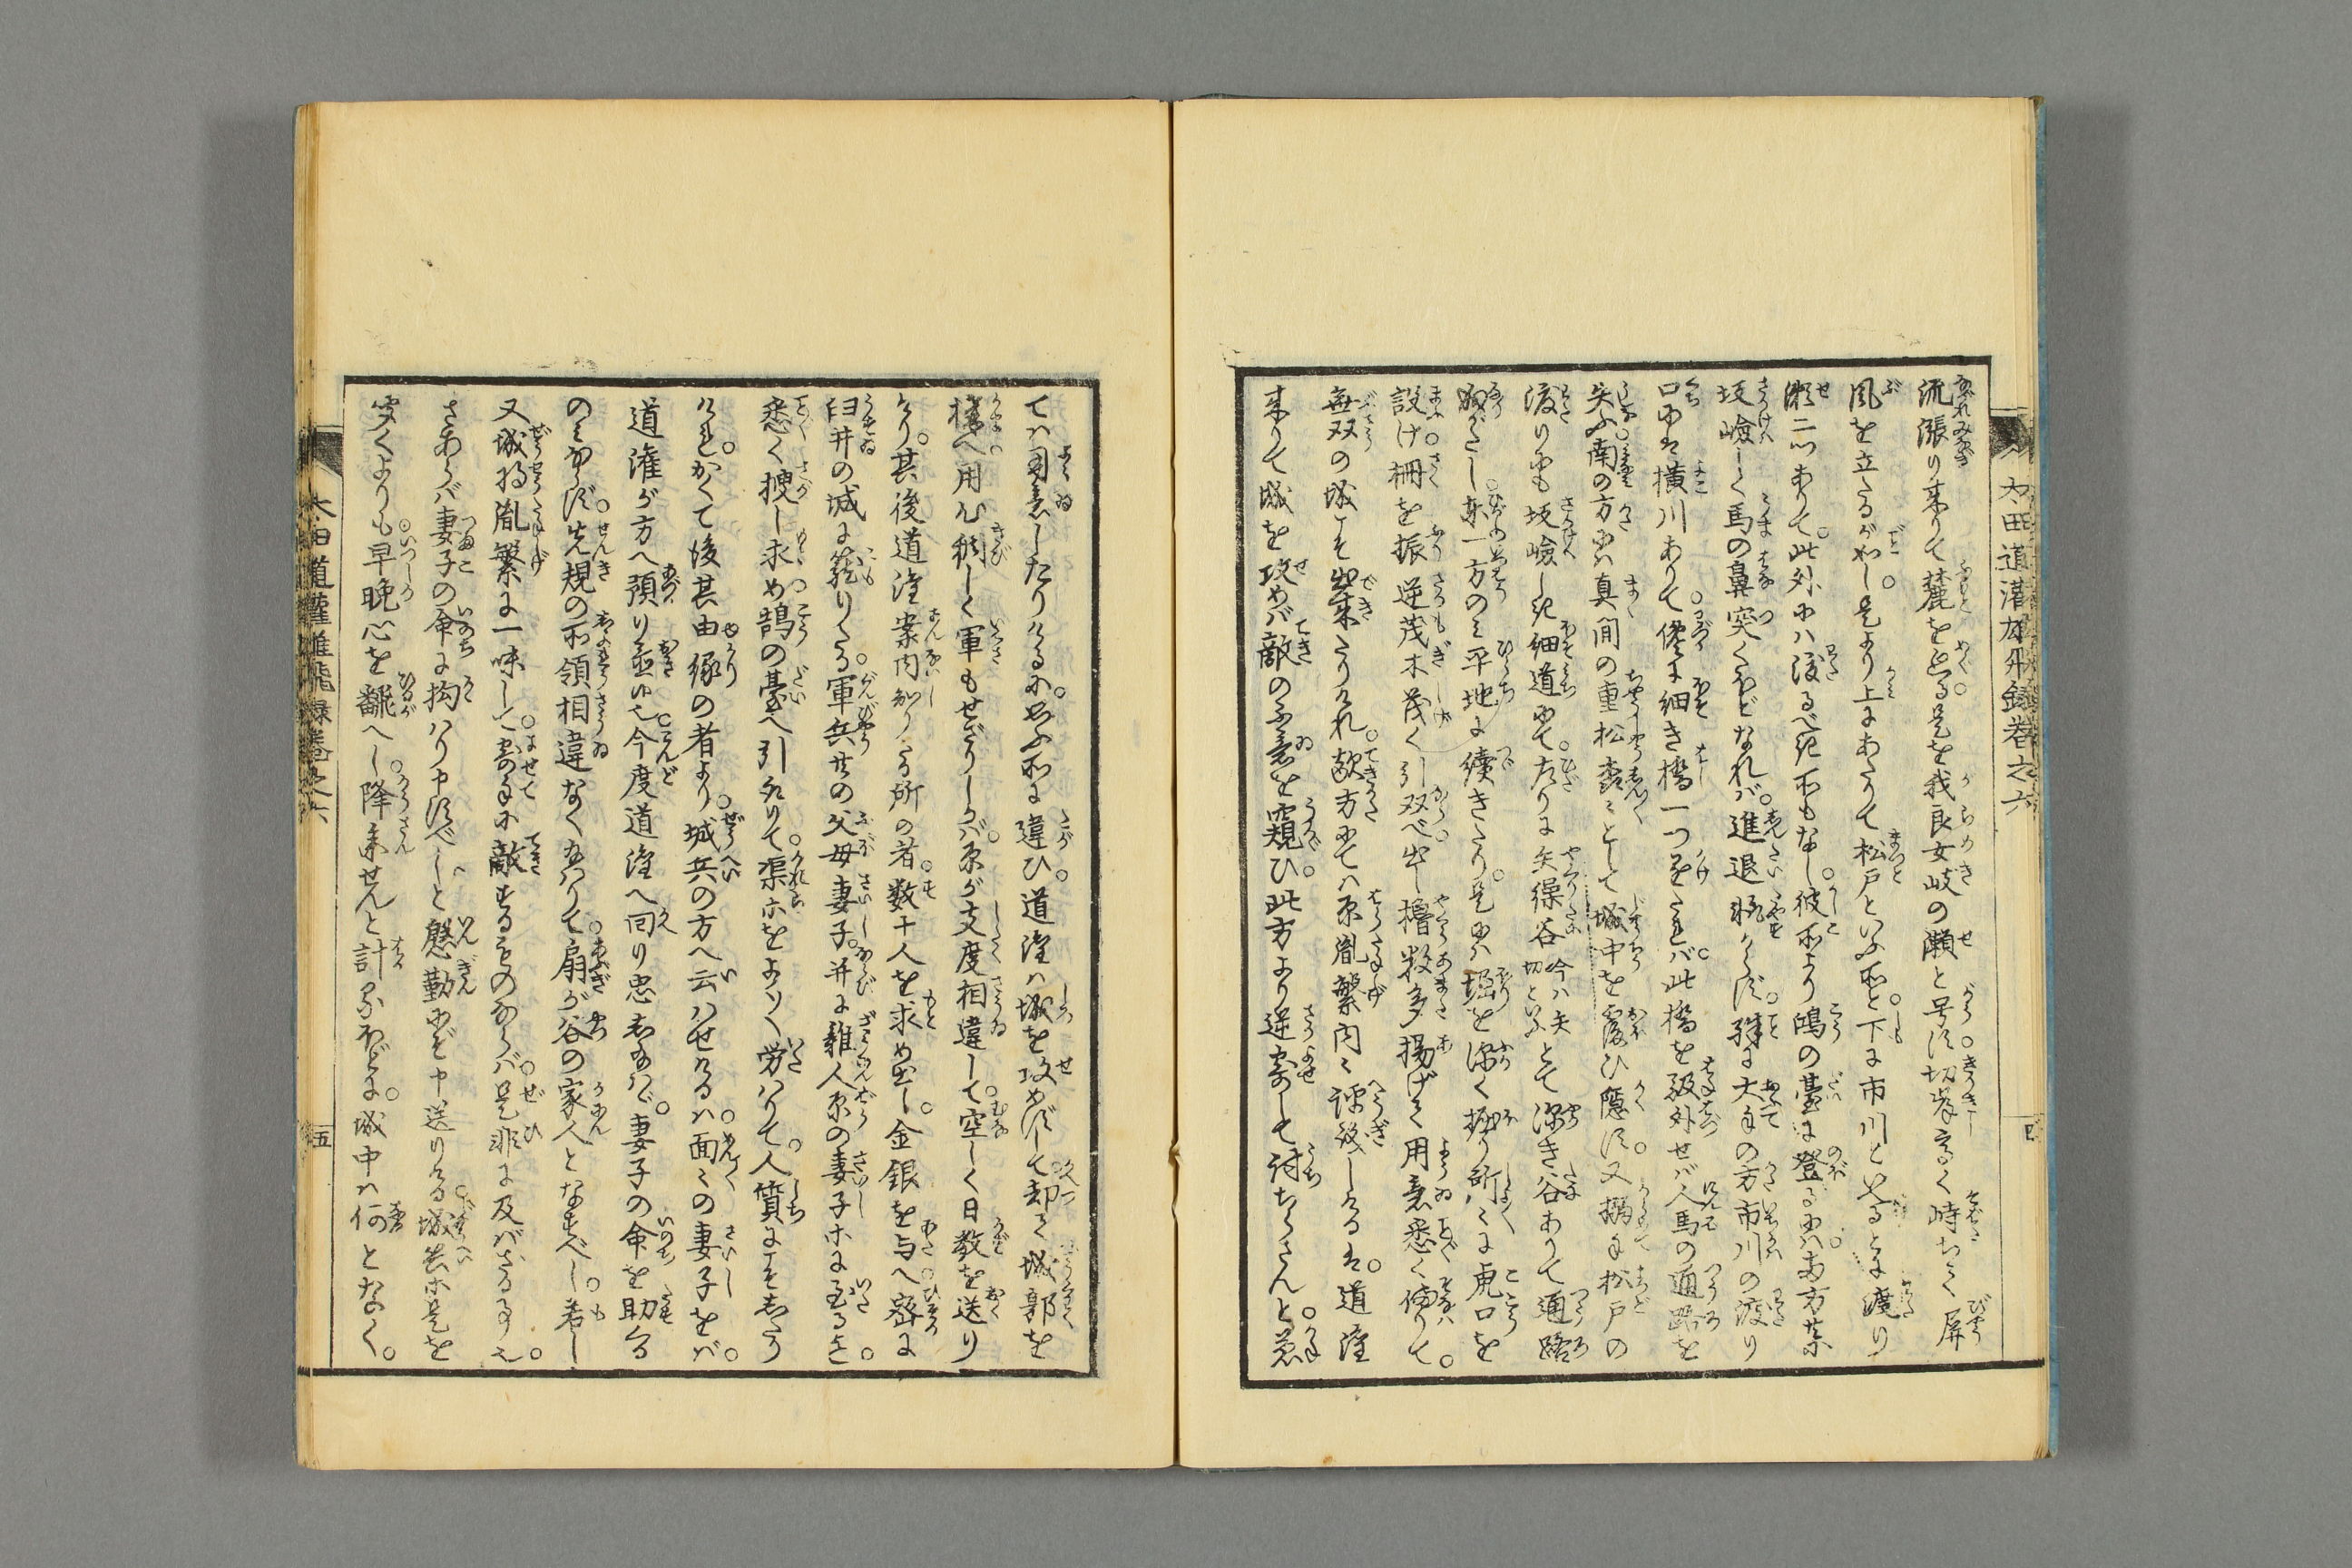 太田道灌雄飛録巻之六
流漲り来りて麓を遶る是を我良女岐の瀬と号す切岸高く峙ちて屏
風を立たるが如し是より上にあたりて松戸といふ所と下に市川と
瀬二つありて此外には渡るべき所もなし彼所より鴻の臺に登るには両方共に
坂嶮しく馬の鼻突くほどなれば進退輙からず殊に大手の方市川の渡り
口には横川ありて僅に細き橋一つを此橋を外せば人馬の通路を
失ふ南の方には真間の重松森々として城中を覆ひ隠す又搦手松戸の
渡りにも坂嶮しき細道にて左りに矢繰谷今ハ矢切といふとて深き谷ありて通路
成がたし東一方のみ平地に續きたり是には堀を深く掘り所々に虎口を
設け柵を振逆茂木茂く引双べ出し櫓数多揚げて用意悉く備りて
無双の城にぞ出来たりけれ敵方にては原胤繁内々評議しけるは道潅
来りて城を攻めバ敵のふ意を窺ひ此方より逆寄して討ちとらんと
四
てハ用意したりけるに思ふ所に違ひ道潅ハ城を攻めずして却て城郭を
構へ用心稠しく軍もせざりしかバ原が支度相違して空しく日数を送り
けり其後道潅案内知りたる所の者数十人を求め出し金銀を与へ密に
臼井の城に籠りたる軍兵共の父母妻子并に雑人原の妻子等に至るまで
悉く捜し求め鵠の臺へ引取りて渠等をよく労はりて人質にこそしたり
けれかくて後其由縁の者より城兵の方へ云ハせけるハ面々の妻子をバ
道潅が方へ預り置ゆゑ今度道潅へ回り忠あらバ妻子の命を助くる
のみならず先規の所領相違なく給ハりて扇が谷の家人となすべし若し
又城将胤繁に一味して寄手に敵するものならバ是非に及バざる事也
さあらバ妻子の命に拘ハり申すべしと慇懃にぞ申送りける城兵等是を
聞くよりも早晩心を飜へし降参せんと計るほどに城中ハ何となく
太田道潅雄飛録巻之六
五